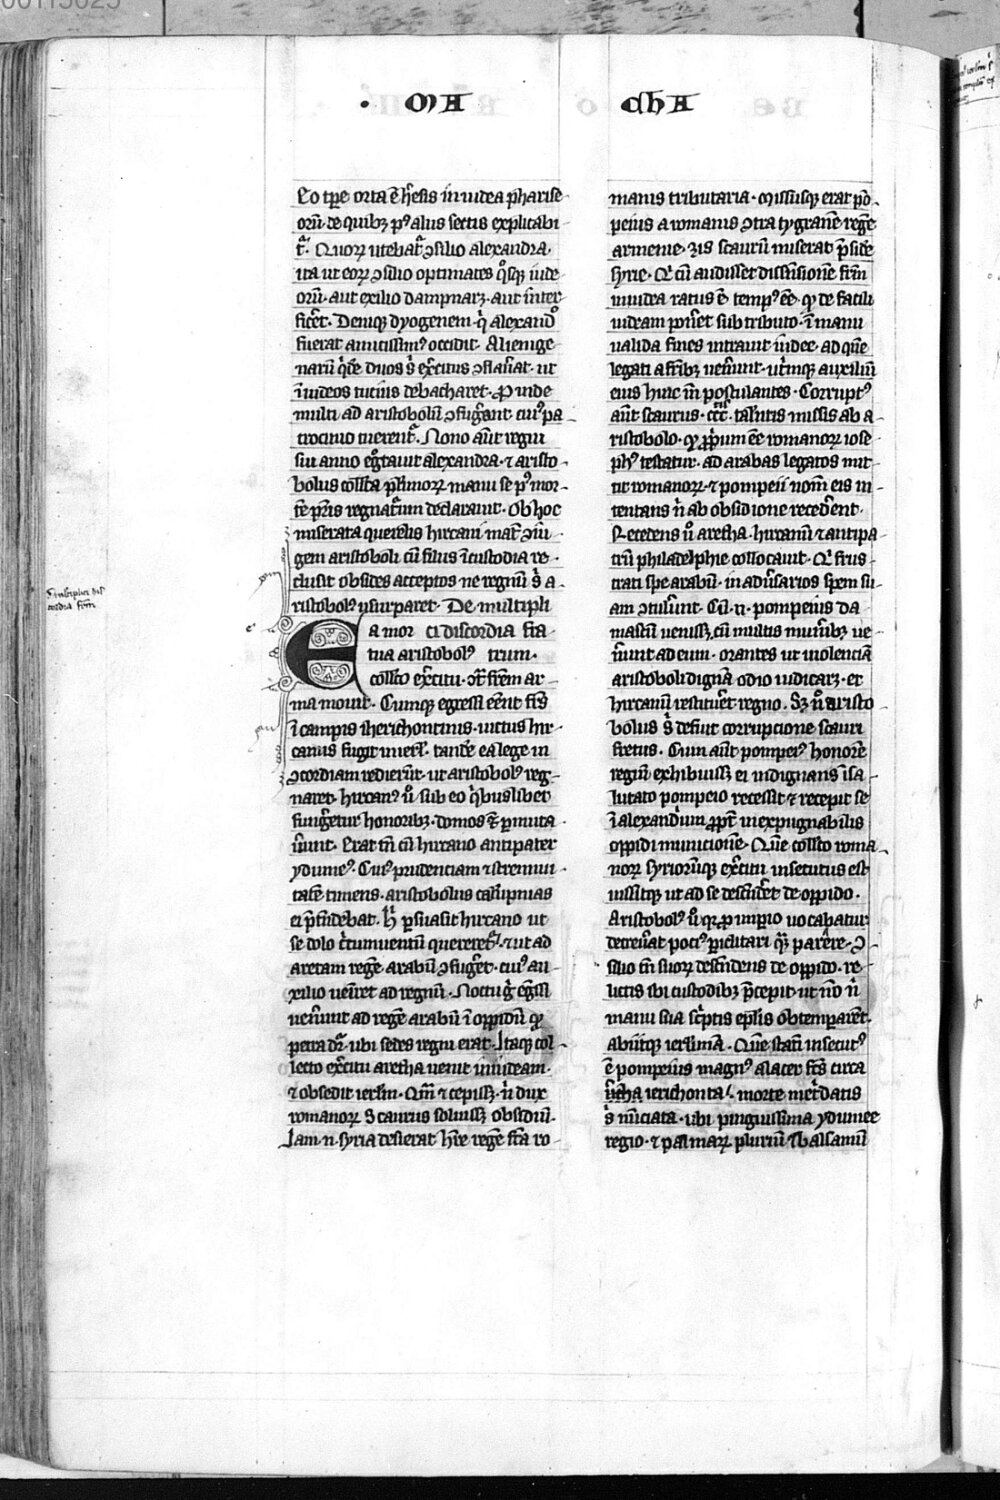 00115025
· MA
chA
Eo tp̄re orta ē h̄esis in iudea phariſe
orū de quibꝫ pꝰ alias sectis explicabi
t᷑. Quoꝝ utebat᷑ ꝯſilio alexandra.
ita ut eoꝝ ꝯſilio optimates qͦſqꝫ iude
orū. aut exilio dampnarꝫ. aut inter
ficēt. Deniqꝫ dyogenem. qͥ alexandͦ
fuerat amiciſſimꝰ occidit. Alienige
narū qͥde duos exercitus ꝯflauat. ut
ī iudeos tucius debacharet. Proinde
multi ad ariſtobolū ꝯfugerant. cuiꝰ pa
trocinio tuerent᷑. Nono aūt regni
sui anno egrotauit alexandra. ⁊ ariſto
bolus collecta manu se pꝰ mor
te pr̄is regnaturum declarauit. Ob hoc
miserata querelis hircani mat᷑ ꝯiu
gem ariſtoboli cū filiis ī cuſtodia re
cluſit obſides acceptos. ne regnū s̄ a
riſtobolꝰ uſurparet. De multipli
ci discordia fra
trum.
Ea mor
tua ariſtobolꝰ
collecto exercitu. ↄ̄ frēm ar
ma mouit. Cumqꝫ egreſſi eēnt frēs
ī campis iherichontinis. uictus hir
canus fugit in iērl̄m. tandē ea lege in
ꝯcordiam redierūt. ut ariſtobolꝰ reg
naret. hircanꝰ ū sub eo qͥbuſlibet
fungeretur honoribꝫ. domos qꝫ ꝑmuta
uerunt. Erat tn̄ cū hircano antipater
ydumeꝰ. Cuiꝰ prudenciam ⁊ ſtrennui
tatē timens. ariſtobolus calūpnias
ei p̄tēdebat. hic ꝑſuaſit hircano ut
se dolo circumuentū quereret᷑. ⁊ ut ad
aretam regē arabū ꝯfugeret. cuiꝰ au
xilio ueniret ad regnū. Noctu g̊ egreſſi
uenerunt ad regē arabū ī oppidū qͦ
petra dr̄. ubi sedes regni erat. Itaqꝫ col
lecto exercitu aretha uenit in iudeam.
⁊ obſedit ierl̄m. Qm̄ ⁊ cepiſſꝫ. nisi dux
romanoꝝ Scaurus soluiſſꝫ obſidiū.
Jam n̄ syria deſierat habere regē facta ro
manis tributaria. Miſſuſqꝫ erat pō
peius a romanis ꝯtra tygranē regē
armenie. Is scaurū miserat p̄sidē
syrie. Qͥ cū audiſſet diſſenſionē frm̄
in iudea ratus ē tempꝰ eē. qͦ de facili
iudeam poneret sub tributo. ī manu
ualida fines intrauit iudee. ad quē
legati a frībꝫ uenerunt. utrimqꝫ auxiliū
eius huic in poſtulantes. Corruptꝰ
aūt scaurus. ccc. talentis miſſis ab a
riſtobolo. qͦ proprium eē romanoꝝ ioſe
phꝰ teſtatur. ad arabas legatos mit
tit romanoꝝ. ⁊ pompeii noīe eis in
tentans n̄ ab obſidione recederent.
Recedens ū aretha. hircanū ⁊ antipa
trū philadelphie collocauit. Qͥ frus
trati ſpe arabū. in aduerſarios ſpem su
am ꝯtulerunt. Cū n̄ pompeius da
maſcū ueniſſꝫ. cū multis muneribꝫ ue
nerunt ad eum. orantes ut uiolenciā
ariſtoboli dignā odio iudicarꝫ. et
hircanū reſtitueret regno. Sꝫ n̄ ariſto
bolus s̄ defuit corrupcione scauri
fretus. Cum aūt pompeiꝰ honorē
regiū exhibuiſſꝫ ei indignans īsa
lutato pompeio receſſit ⁊ recepit se
ī alexandrium ꝓpt᷑ inexpugnabilis
oppidi municionē. Quē collecto roma
noꝝ syrioꝝqꝫ exercitu inſecutus est
iuſſitqꝫ ut ad se deſcenderet de oppido.
Ariſtobolꝰ ū qͥ ꝓ imperio uocabatur
decreuerat pociꝰ periclitari qͣ parere. ꝯ
ſilio tn̄ suoꝝ deſcendens de oppido. re
lictis ibi cuſtodibꝫ p̄cepit. ut nō nisi
manu sua scriptis epl̄is obtemperarent.
Abiitqꝫ ierl̄imā. Quē statī inſecutꝰ
ē pompeius magnꝰ alacer fc̄s circa
iericha ierichonta. morte metridatis
s̄ nūciata. ubi pinguiſſima ydumee
regio. ⁊ palmaꝝ plurimū ⁊ balsamū